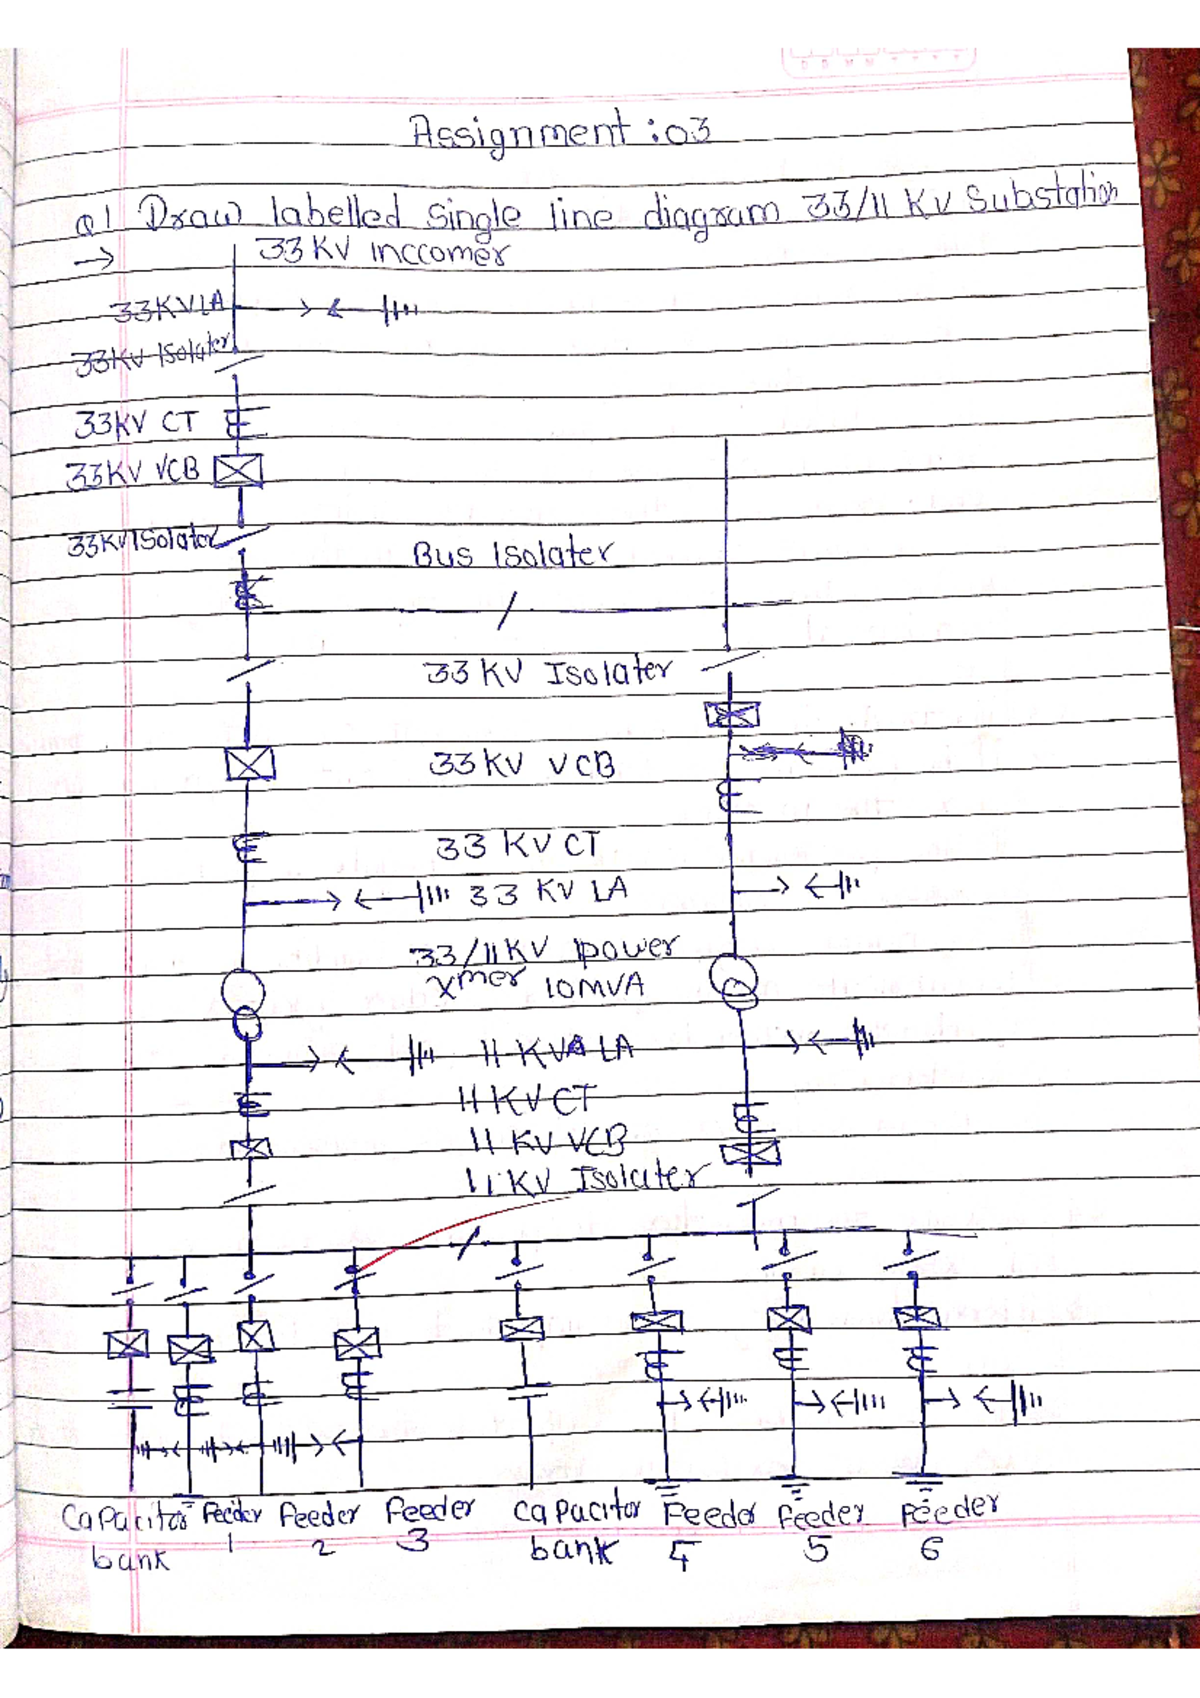 Assignment : 03
Q1 Draw labelled single line diagram 33/11 KV Substation
→ 33 KV Inccomer
33KV LA
33KV Isolater
33KV CT
33KV VCB
33KV Isolator
Bus Isolater
33 KV Isolater
33 KV VCB
33 KV CT
33 KV LA
33/11 KV power
Xmer 10MVA
11 KVA LA
11 KV CT
11 KV VCB
11 KV Isolater
Capacitor bank
Feeder 1
Feeder 2
Feeder 3
Capacitor bank
Feeder 4
Feeder 5
Feeder 6